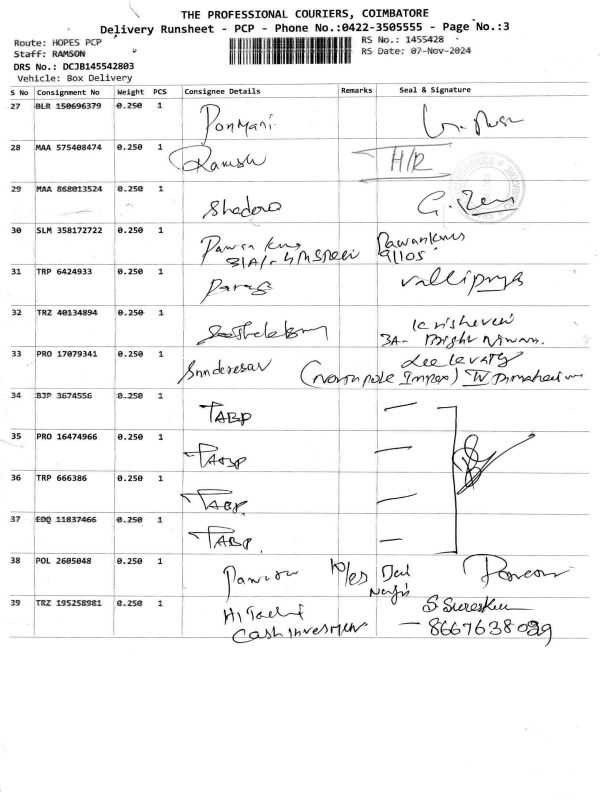 THE PROFESSIONAL COURIERS, COIMBATORE
Delivery Runsheet - PCP - Phone No.:0422-3505555 - Page No.:3
Route: HOPES PCP
Staff: RAMSON
DRS No.: DCJB145542803
Vehicle: Box Delivery
RS No.: 1455428
RS Date: 07-Nov-2024
S No Consignment No Weight PCS Consignee Details Remarks Seal & Signature
27 BLR 150696379 0.250 1 Ponmani
28 MAA 575408474 0.250 1 Ramesh H/R
29 MAA 868013524 0.250 1
30 SLM 358172722 0.250 1 Pawan Kums Pawankums
31 TRP 6424933 0.250 1 vallipriya
32 TRZ 40134894 0.250 1
3A- Bright Nivan.
33 PRO 17079341 0.250 1 Sundaresar Leelavathy
(North pole Impex)
34 BJP 3674556 0.250 1 TABP
35 PRO 16474966 0.250 1 TABP
36 TRP 666386 0.250 1 TABP.
37 EDQ 11037466 0.250 1 TABP.
38 POL 2605048 0.250 1
39 TRZ 195258981 0.250 1 Hitachi S Sureshku
Cash Investmen - 8667638029